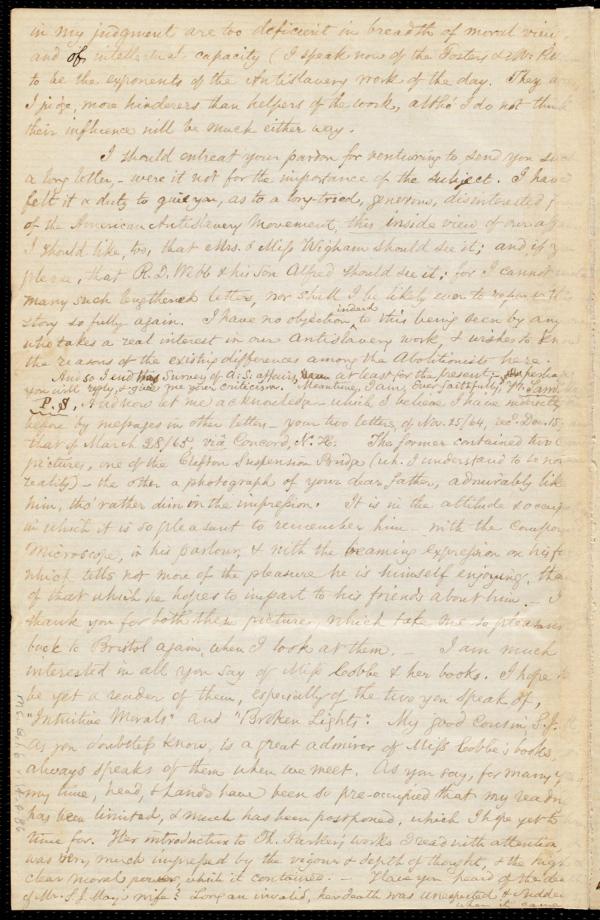 in my judgment are too deficient in breadth of moral view,
and of intellectual capacity (I speak now of the Fosters & Mr. P
to be the exponents of the Antislavery work of the day. They are,
I judge, more hinderers than helpers of the work, altho' I do not think
their influence will be much either way.
I should entreat your pardon for venturing to send you such
a long letter, - were it not for the importance of the subject. I have
felt it a duty to give you, as to a long-tried, generous, disinterested
of the American Antislavery Movement, this inside view of our
I should like, too, that Mrs. & Miss Wigham should see it; and, if you
please, that R. D. Webb & his son Alfred should see it; for I cannot
many such lengthened letters, nor shall I be likely ever to
story so fully again. I have no objection indeed to this being seen by any
who takes a real interest in our Antislavery work, & wishes to know
the reasons of the existing differences among the Abolitionists here.
And so I end this Survey of A. S. affairs, at least for the present; perhaps
you will reply, & give me your criticism. Meantime, I am, Ever faithfully, Yr.
P. S. And now let me acknowledge - which I believe I have
before by messages in other letters - your two letters, of Nov. 25/64, rec'd. Dec. 15,
that of March 28/65, via Concord, N. H. The former contained two
pictures, one of the Clifton Suspension Bridge (wh. I understand to be now
reality) - the other a photograph of your dear father, admirably like
him, tho' rather dim in the impression. It is in the attitude & occup
in which it is so pleasant to remember him - with the compound
Microscope, in his parlour, & with the beaming expression on his
which tells not more of the pleasure he is himself enjoying, than
of that which he hopes to impart to his friends about him. - I
thank you for both these pictures, which take me so pleasantly
back to Bristol again, when I look at them. - I am much
interested in all you say of Miss Cobbe & her books. I hope to
be yet a reader of them, especially of the two you speak of,
"Intuitive Morals" and "Broken Lights". My good Cousin S. J.
as you doubtless know, is a great admirer of Miss Cobbe's books,
always speaks of them when we meet. As you say, for many
my time, head, & hands have been so pre-occupied that my reading
has been limited, & much has been postponed, which I hope yet to
time for. Her introduction to Th. Parker's works I read with attention,
was very much impressed by the vigour & depth of thought, & the high
clear moral power, which it contained. - Have you heard of the death
of Mr. S. J. May's wife? Long an invalid, her death was unexpected & sudden
when it came